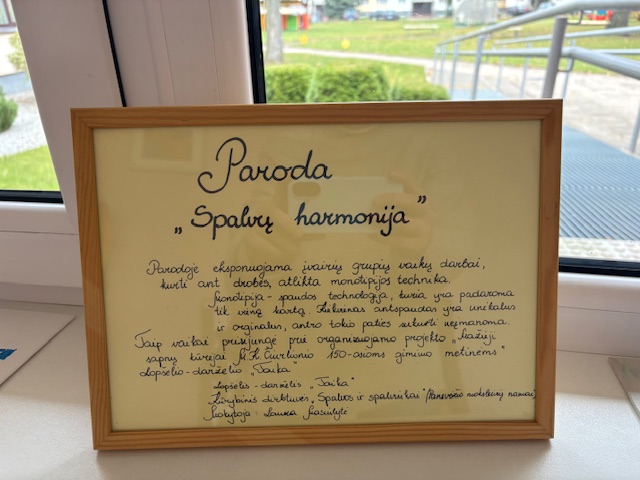 Paroda
„Spalvų harmonija"
Parodoje eksponuojama įvairių grupių vaikų darbai,
kurti ant drobės, atlikta monotipijos technika.
Monotipija - spaudos technologija, kuria yra padaroma
tik vieną kartą. Kiekvienas antspaudas yra unikalus
ir orginalus, antro tokio paties sukurti neįmanoma.
Taip vaikai prisijungė prie organizuojamo projekto „Mažieji
sapnų kūrėjai M. K. Čiurlionio 150-osioms gimimo metinėms"
Lopšelio-darželio „Taika"
Lopšelis-darželis „Taika"
Kūrybinės dirbtuvės „Spalvos ir spalvriukai" (Panevėžio moksleivių namai)
Mokytoja: Laura Masiulytė